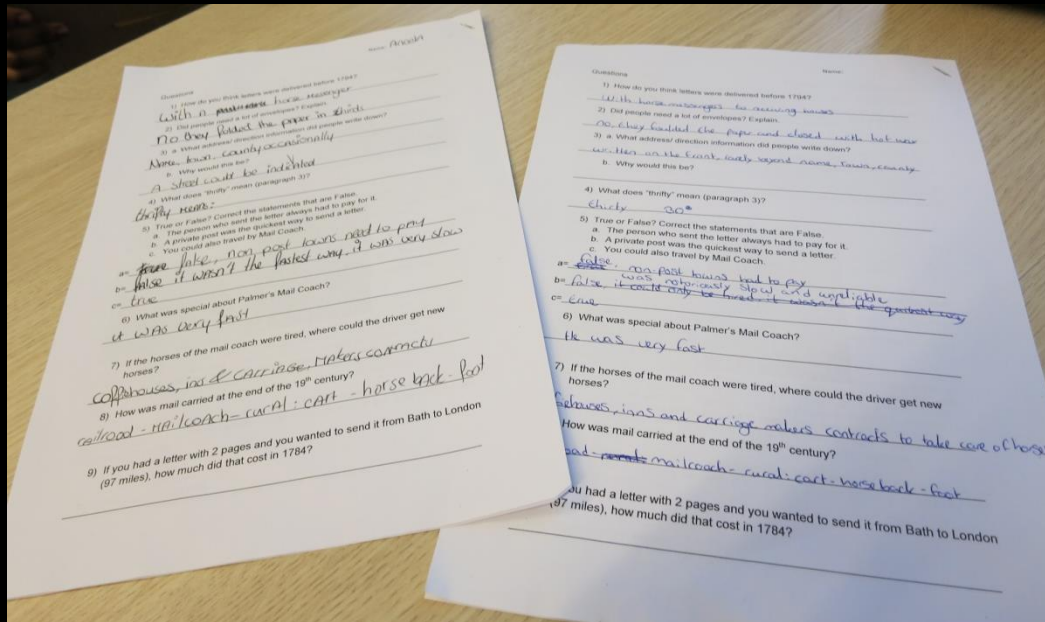 Name: Anouk
Questions
1) How do you think letters were delivered before 1784?
With a horse messenger
2) Did people need a lot of envelopes? Explain.
no they folded the paper in
3) a. What address/ direction information did people write down?
Name, town, county occasionally
b. Why would this be?
A street could be indicated
4) What does "thrifty" mean (paragraph 3)?
thrifty means:
5) True or False? Correct the statements that are False.
a. The person who sent the letter always had to pay for it.
b. A private post was the quickest way to send a letter.
c. You could also travel by Mail Coach.
a= false, non post towns need to pay
b= false it wasn't the fastest way, it was very slow
c= true
6) What was special about Palmer's Mail Coach?
it was very fast
7) If the horses of the mail coach were tired, where could the driver get new
horses?
inns & carriage, makers contracts
8) How was mail carried at the end of the 19th century?
railroad - mailcoach - rural: cart - horse back - foot
9) If you had a letter with 2 pages and you wanted to send it from Bath to London
(97 miles), how much did that cost in 1784?
Name:
Questions
1) How do you think letters were delivered before 1784?
with horse to receiving houses
2) Did people need a lot of envelopes? Explain.
no, they the paper and closed with hot wax
3) a. What address/ direction information did people write down?
written on the front, rarely beyond name, town, county
b. Why would this be?
4) What does "thrifty" mean (paragraph 3)?
5) True or False? Correct the statements that are False.
a. The person who sent the letter always had to pay for it.
b. A private post was the quickest way to send a letter.
c. You could also travel by Mail Coach.
a= false, non-post towns had to pay
was notoriously slow and unreliable
b= false, it could only be hired it wasn't the quickest way
c= true
6) What was special about Palmer's Mail Coach?
He was very fast
7) If the horses of the mail coach were tired, where could the driver get new
horses?
inns and carriage makers contracts to take care of
How was mail carried at the end of the 19th century?
oad - mailcoach - rural: cart - horseback - foot
ou had a letter with 2 pages and you wanted to send it from Bath to London
(97 miles), how much did that cost in 1784?